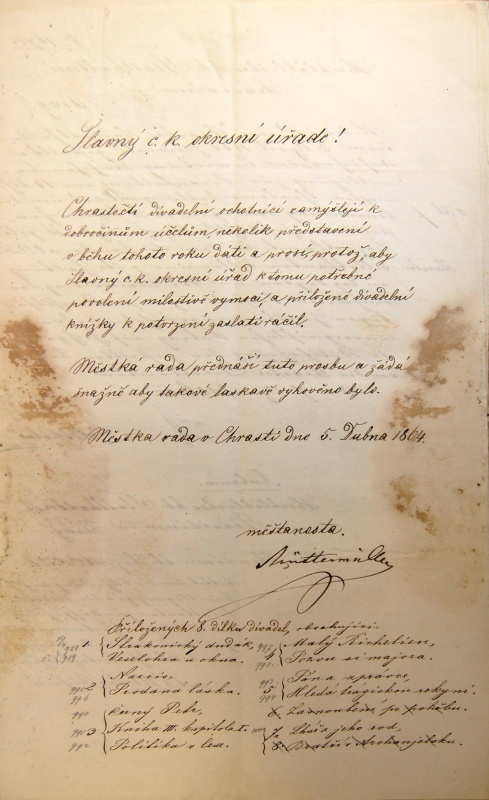 Slavný c. k. okresní úřade!
Chrastečtí divadelní ochotníci zamýšlejí k
dobročiným účelům, několik představení
v běhu tohoto roku dáti a prosí, protož, aby
Slavný c. k. okresní úřad k tomu potřebné
povolení milostivě vymoci, a přiložené divadelní
knížky k potvrzení zaslati ráčil.
Městká rada přednáší tuto prosbu a žádá
snažně aby takové laskavě vyhověno bylo.
Městka rada v Chrasti dne 5. Dubna 1864.
městanosta.
Přiložených 8. dílku divadel, obsahující:
1 Strakonický dudák,
Veselohra u okna.
2 Narcis,
Prodaná láska.
3 Černý Petr,
Kniha III. kapitola I.
Politika v lese.
4 Malý Richelieu,
Pozor si majora.
5 Pána správce,
Hledá tragickou rekyni.
jeho rod,